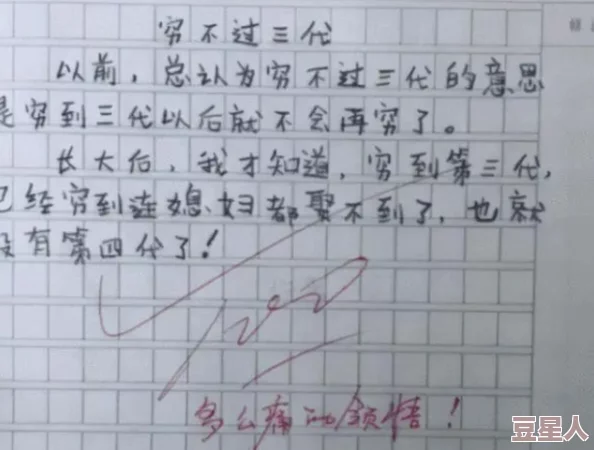 穷不过三代
以前，总认为穷不过三代的意思
是穷到三代以后就不会再穷了。
长大后，我才知道，穷到第三代，
已经穷到连媳妇都娶不到了，也就
没有第四代了！
100
多么痛的领悟！
豆星人